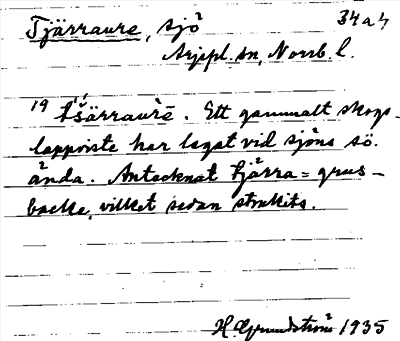 Tjärraure, sjö 34a4
Arjepl. sn, Norrb. l.
19 tšärraure. Ett gammalt skogs-
lappviste har legat vid sjöns sö.
ända. Antecknat tjärra = grus-
backe, vilket sedan strukits.
H. Grundström 1935